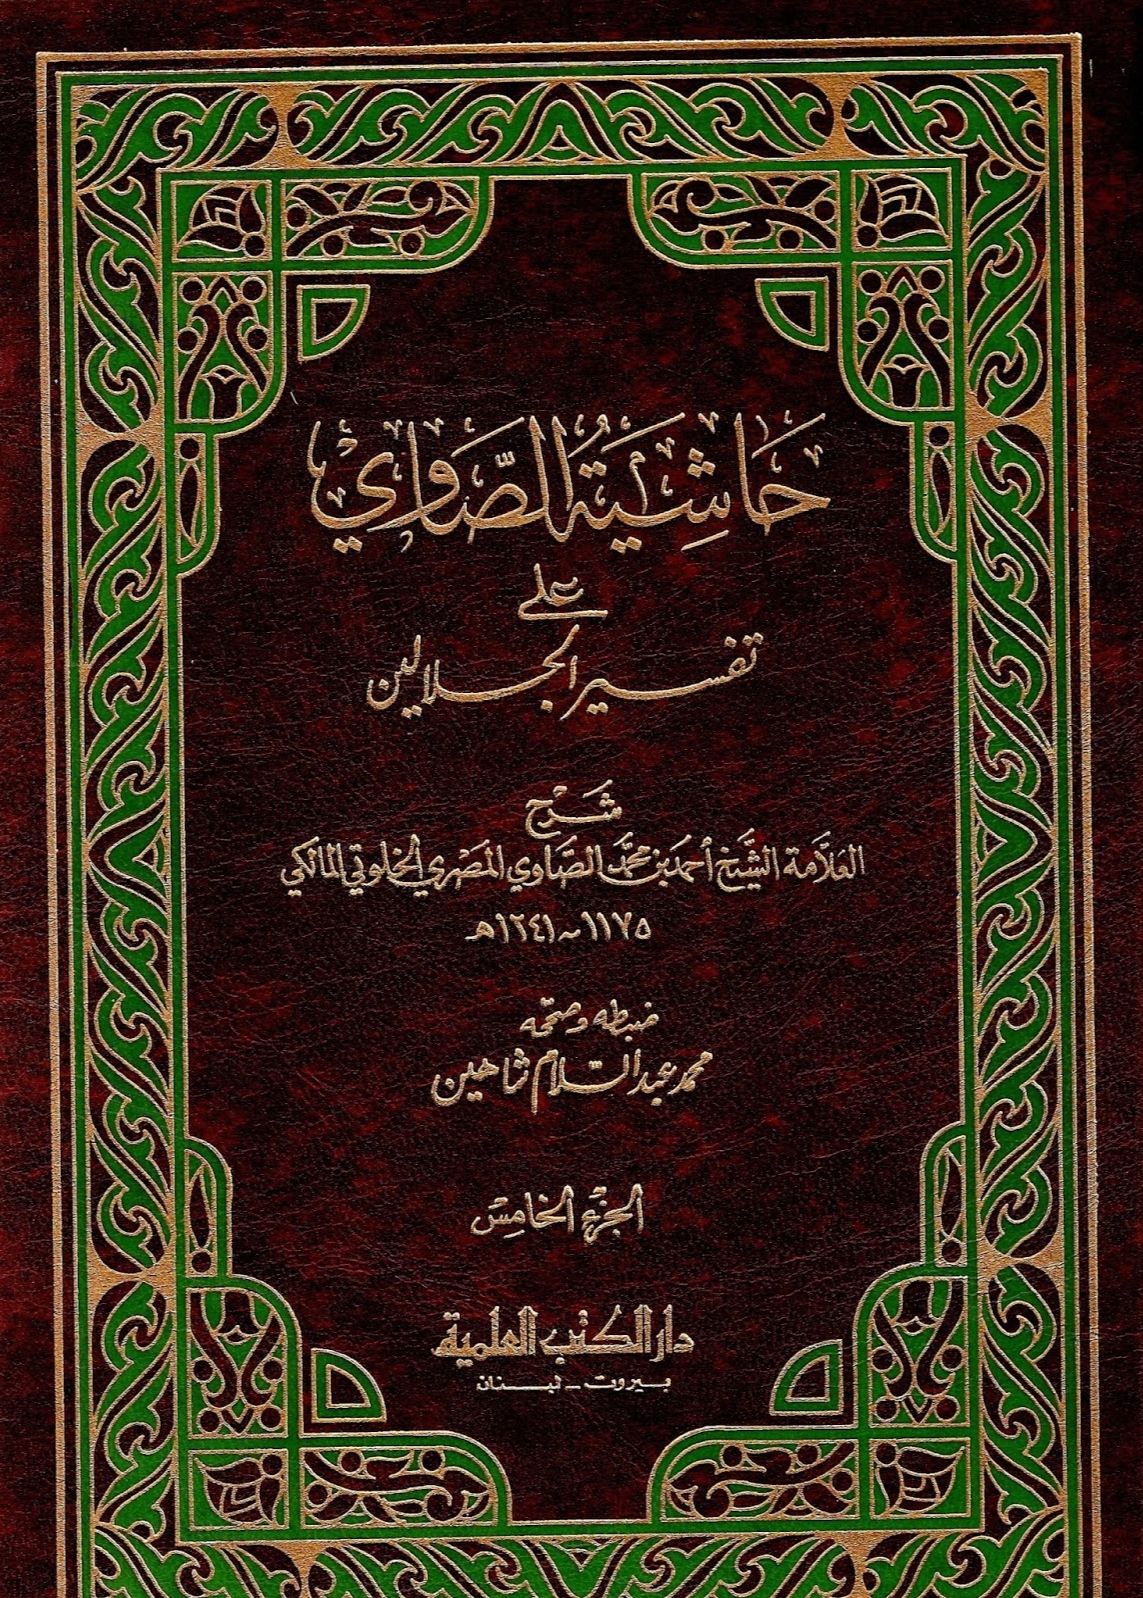 حَاشِيَةُ الصَّاوِي
على
تفسير الجلالين
شَرْح
العَلاَّمة الشَّيْخ أحمَد بن محمَّد الصَّاوي المَصْري الخلوتي المالكي
١١٧٥ ~ ١٢٤١هـ
ضبطه وصحّحه
محمد عبد السَّلام شاهين
الجزْء الخَامِسْ
دار الكتب العلمية
بيروت - لبنان